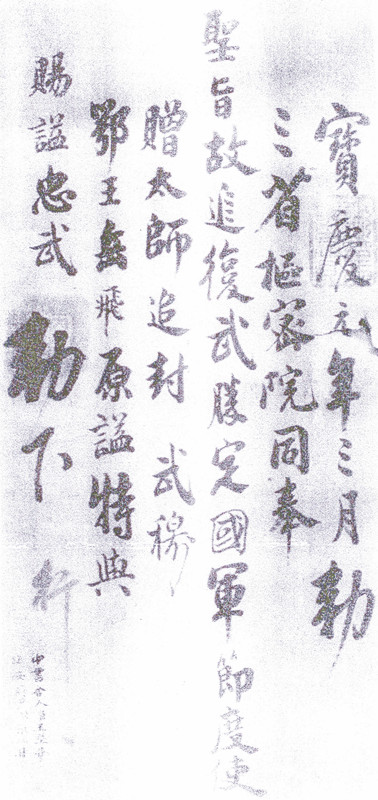 寶慶元年三月勅
三省樞密院同奉
聖旨故追復武勝定國軍節度使
贈太師追封 武穆
鄂王岳飛原謚特與
賜謚忠武 勅下 行
中書舍人臣